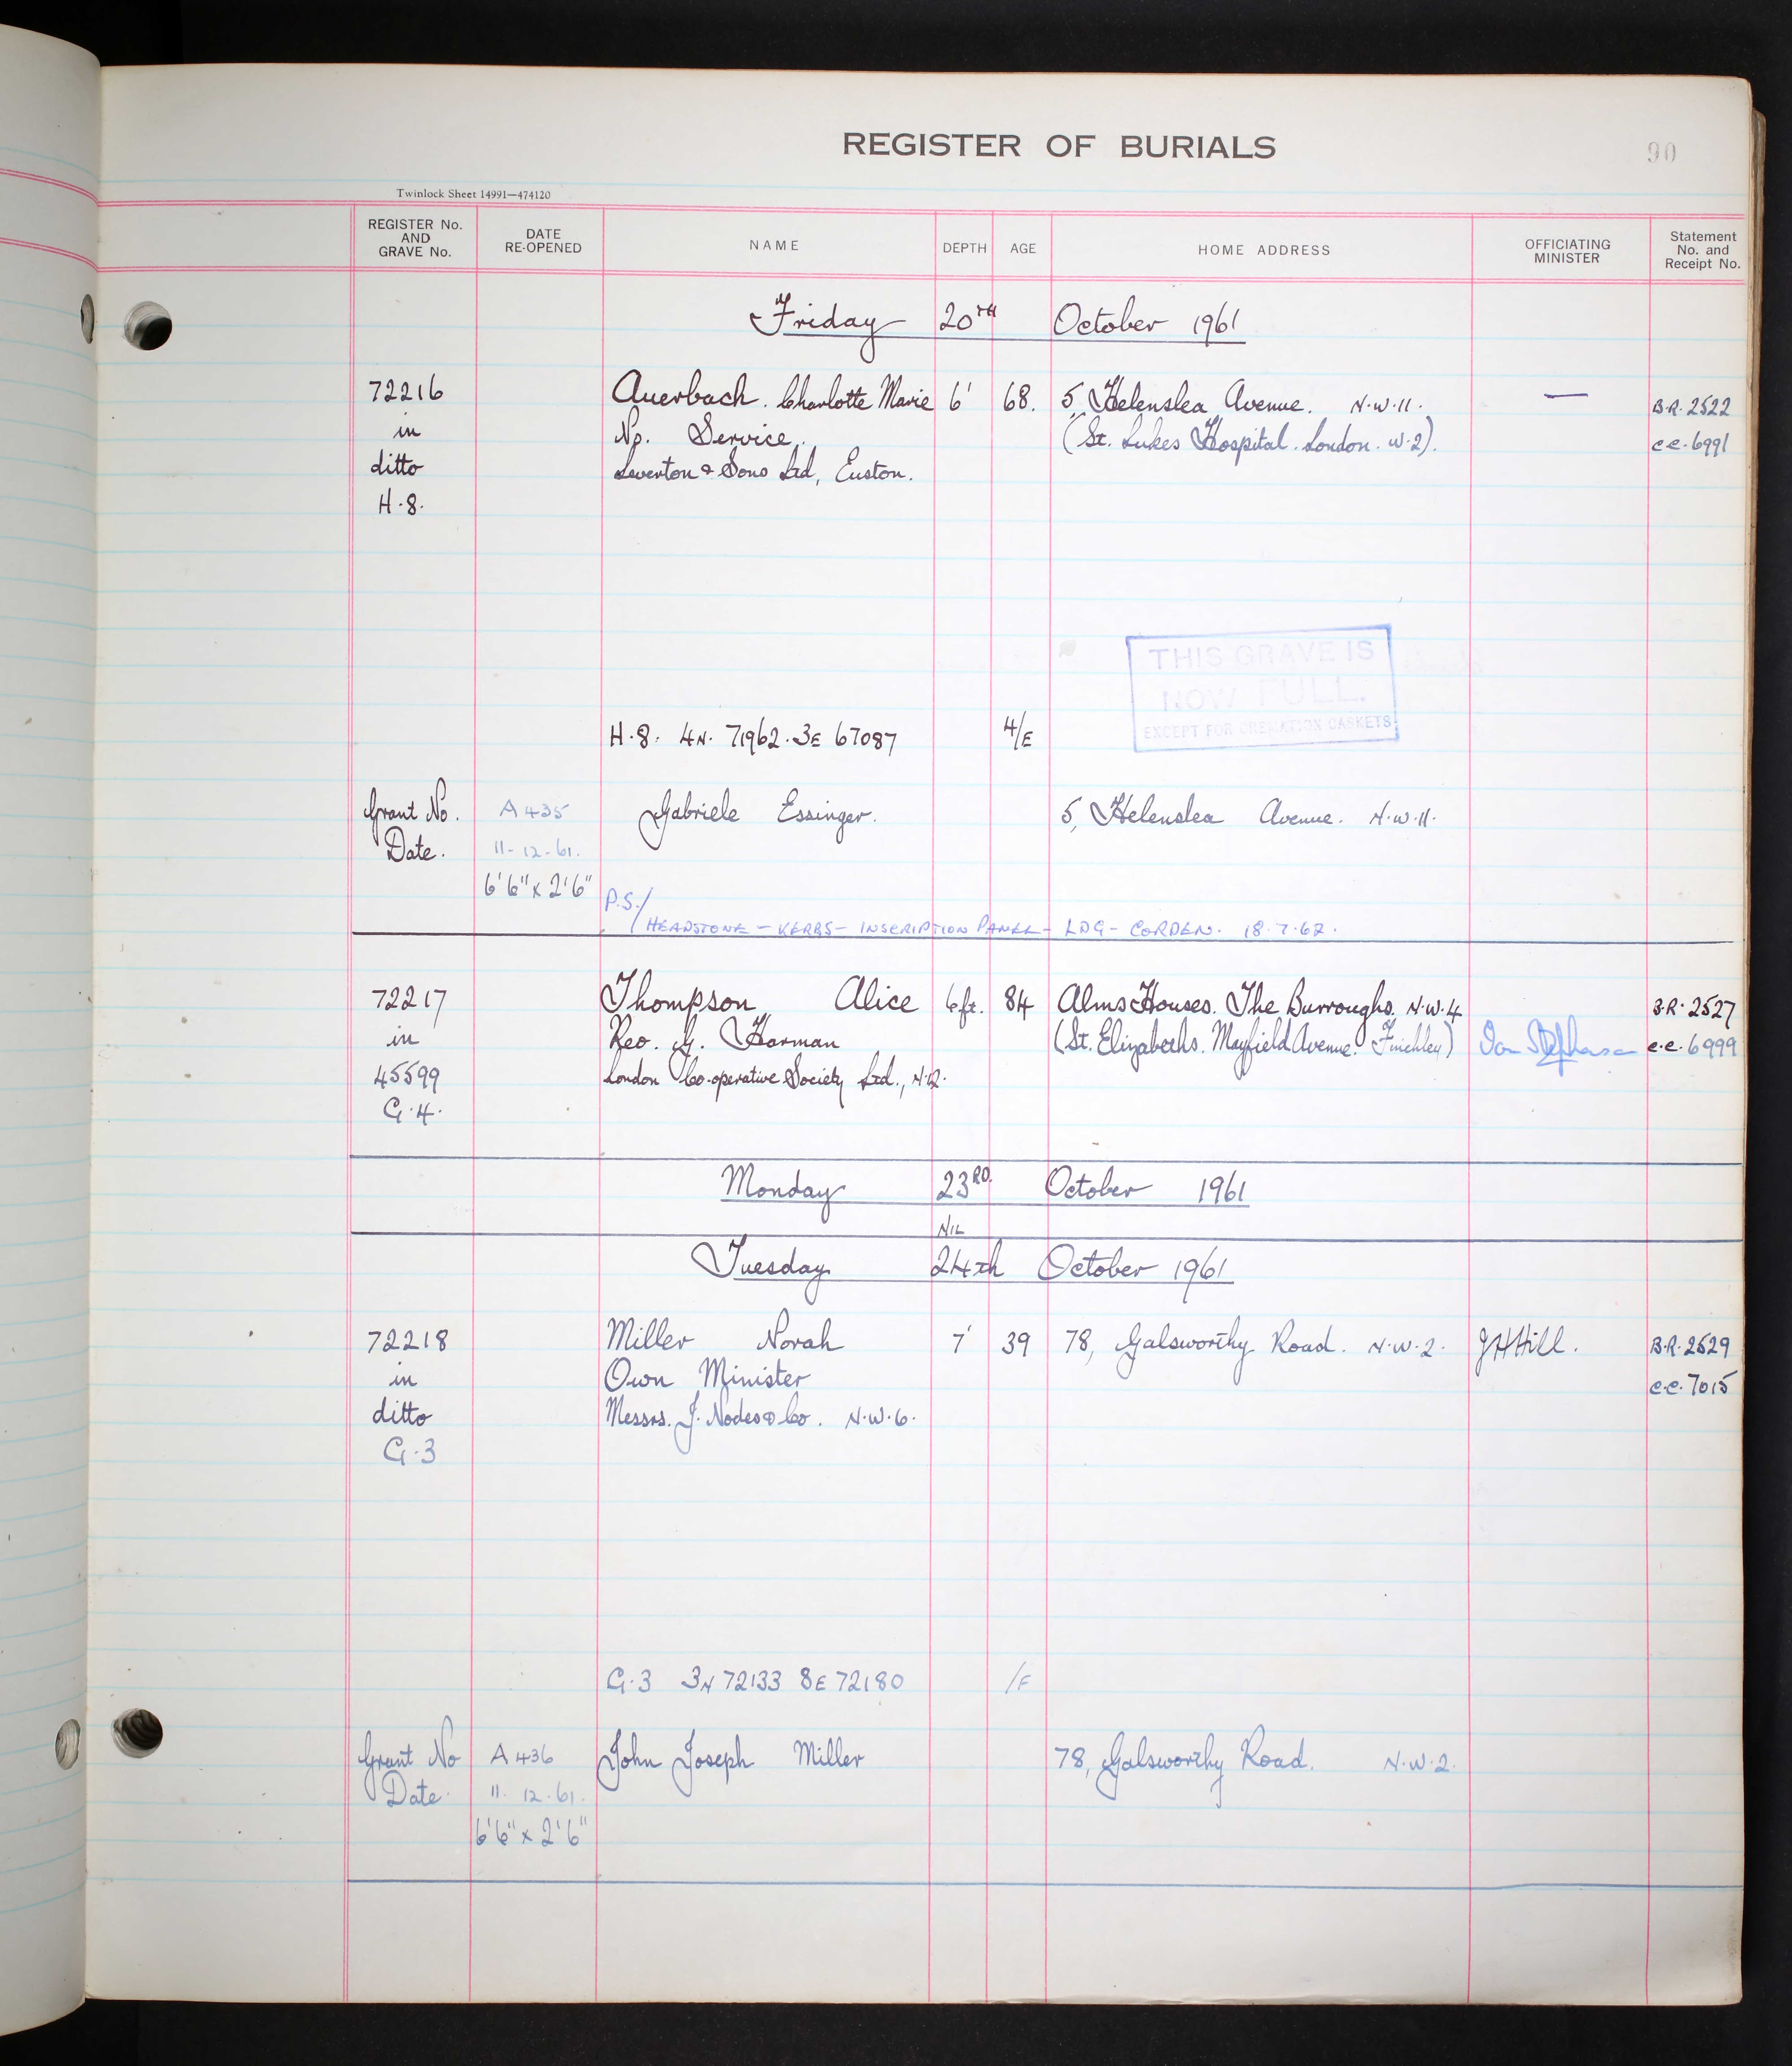 REGISTER OF BURIALS
90
Twinlock Sheet 14991—474120
REGISTER No. AND GRAVE No. DATE RE-OPENED NAME DEPTH AGE HOME ADDRESS OFFICIATING MINISTER Statement No. and Receipt No.
Friday 20TH October 1961
72216 Auerbach. Charlotte Marie 6' 68. 5, Helenslea Avenue. N.W.11. — B.R. 2522
in No. Service. (St. Lukes Hospital. London. W.2). c.c. 6991
ditto Leverton & Sons Ltd, Euston.
H.8.
THIS GRAVE IS
NOW FULL.
EXCEPT FOR CREMATION CASKETS
H.8. 4N. 71962. 3E 67087 4/E
Grant No. A 435 Gabriele Essinger. 5, Helenslea Avenue. N.W.11.
Date. 11-12-61.
6'6" x 2'6"
P.S./
HEADSTONE – KERBS – INSCRIPTION PANEL – LDG – CORDEN. 18.7.62.
72217 Thompson Alice 6ft. 84 Alms Houses. The Burroughs. N.W.4 B.R. 2527
in Rev. G. Harman (St. Elizabeths. Mayfield Avenue. Finchley) c.c. 6999
45599 London Co-operative Society Ltd., N.12.
G.4.
Monday 23RD. October 1961
NIL
Tuesday 24th October 1961
72218 Miller Norah 7' 39 78, Galsworthy Road. N.W.2. JHHill. B.R. 2529
in Own Minister c.c. 7015
ditto Messrs. J. Nodes & Co. N.W.6.
G.3
G.3 3N 72133 8E 72180 /E
Grant No A 436 John Joseph Miller 78, Galsworthy Road. N.W.2.
Date. 11.12.61.
6'6" x 2'6"